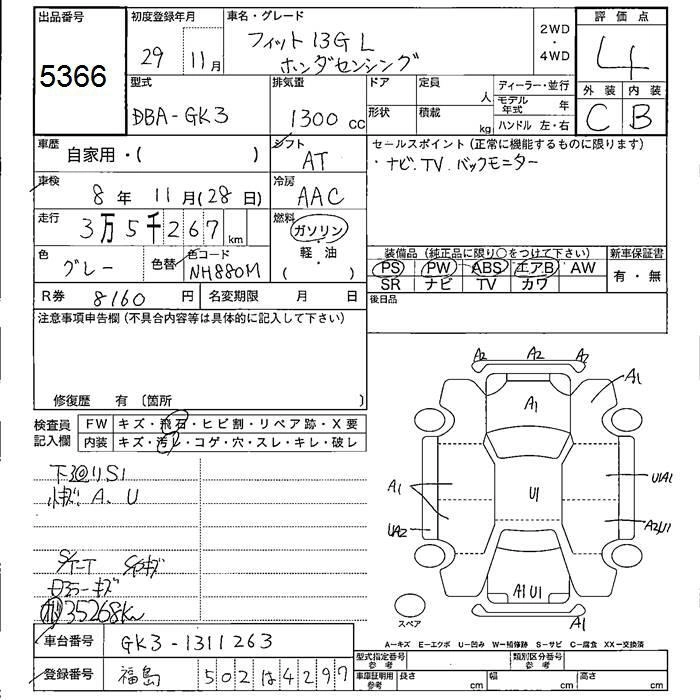 出品番号
5366
初度登録年月
29 11月
車名・グレード
フィット 13G L
ホンダセンシング
2WD
・
4WD
評価点
4
外装 内装
C B
型式
DBA-GK3
排気量
1300 cc
ドア
定員
人
形状
積載
kg
ディーラー・並行
モデル年式 年
ハンドル 左・右
車歴
自家用・( )
シフト
AT
セールスポイント(正常に機能するものに限ります)
・ナビ.TV.バックモニター
車検
8年 11月(28日)
冷房
AAC
走行
3万5千267km
燃料
ガソリン
・
軽・油
( )
色
グレー
色替
色コード
NH880M
装備品(純正品に限り○をつけて下さい)
新車保証書
PS PW ABS エアB AW
SR ナビ TV カワ
有・無
R券 8160円
名変期限 月 日
後日品
注意事項申告欄(不具合内容等は具体的に記入して下さい)
修復歴 有〔箇所 〕
検査員
記入欄
FW キズ・飛石・ヒビ割・リペア跡・X要
内装 キズ・汚レ・コゲ・穴・スレ・キレ・破レ
下廻りS1
小キズ A、U
35268km
A2 A2 A2
A1
A1
A1
U1
U1A1
UA2
A2U1
A1U1
A1
スペア
A-キズ E-エクボ U-凹み W-補修跡 S-サビ C-腐食 XX-交換済
車台番号
GK3-1311263
登録番号
福島 502は4297
型式指定番号
参考
類別区分番号
参考
車庫証明用
参考
長さ cm
幅 cm
高さ cm